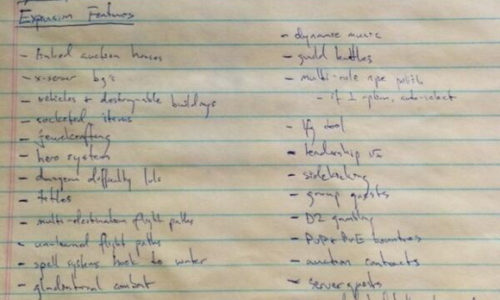 Expansion Features
- linked auction houses
- x-server bg's
- vehicles + destroyable buildings
- socketed items
- jewelcrafting
- hero system
- dungeon difficulty lvls
- titles
- multi-destination flight paths
- flight paths
- spell systems to water
- gladiatorial combat
- dynamic music
- guild battles
- multi-role
- if 1 option, auto-select
- lfg tool
- leadership
- sidekicking
- group quests
- D2 gambling
- PvP + PvE bounties
- auction contracts
- server quests